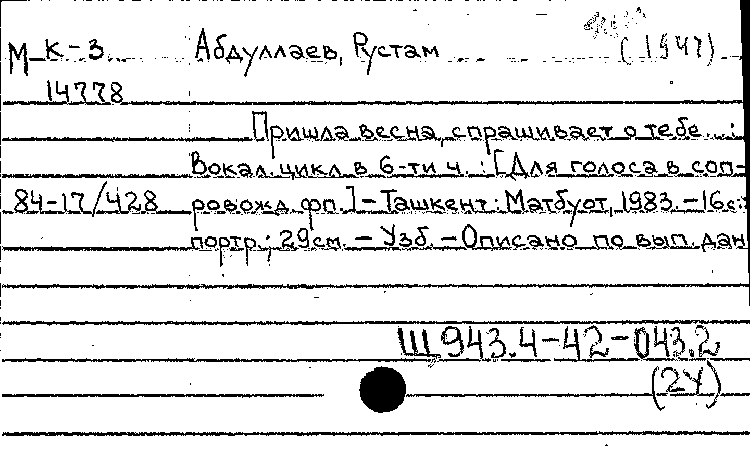 М К-3 Абдуллаев, Рустам (1947)
14778
Пришла весна, спрашивает о тебе...:
Вокал. цикл в 6-ти ч. : [Для голоса в соп-
84-17/428 ровожд. фп.]-Ташкент: Матбуот, 1983.-16с:
портр.; 29см. - Узб. - Описано по вып. дан
Щ943.4-42-043.2
(2У)